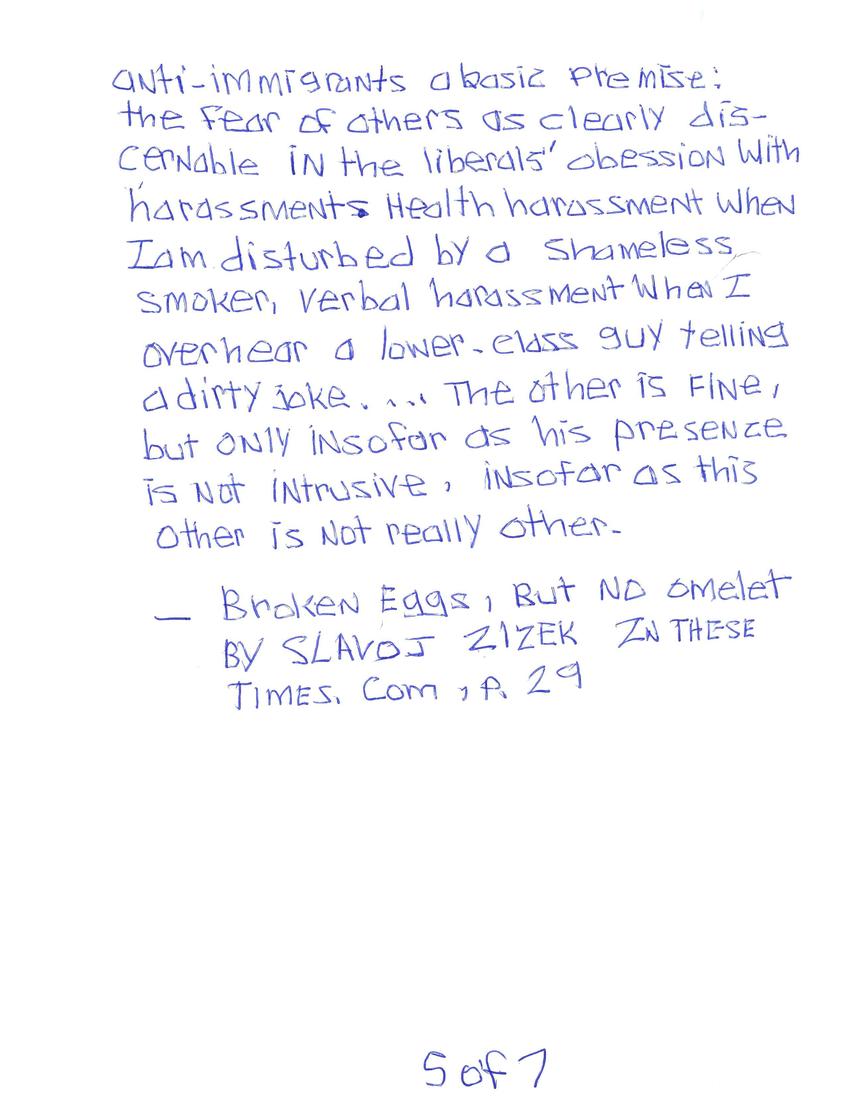 anti-immigrants a basic premise:
the fear of others as clearly dis-
cernable in the liberals' obession with
harassments Health harassment when
I am disturbed by a shameless
smoker, verbal harassment when I
overhear a lower-class guy telling
a dirty joke. ... The other is fine,
but only insofar as his presence
is not intrusive, insofar as this
other is not really other.
— Broken Eggs, But No omelet
BY SLAVOJ ZIZEK IN THESE
TIMES. Com, p. 29
5 of 7